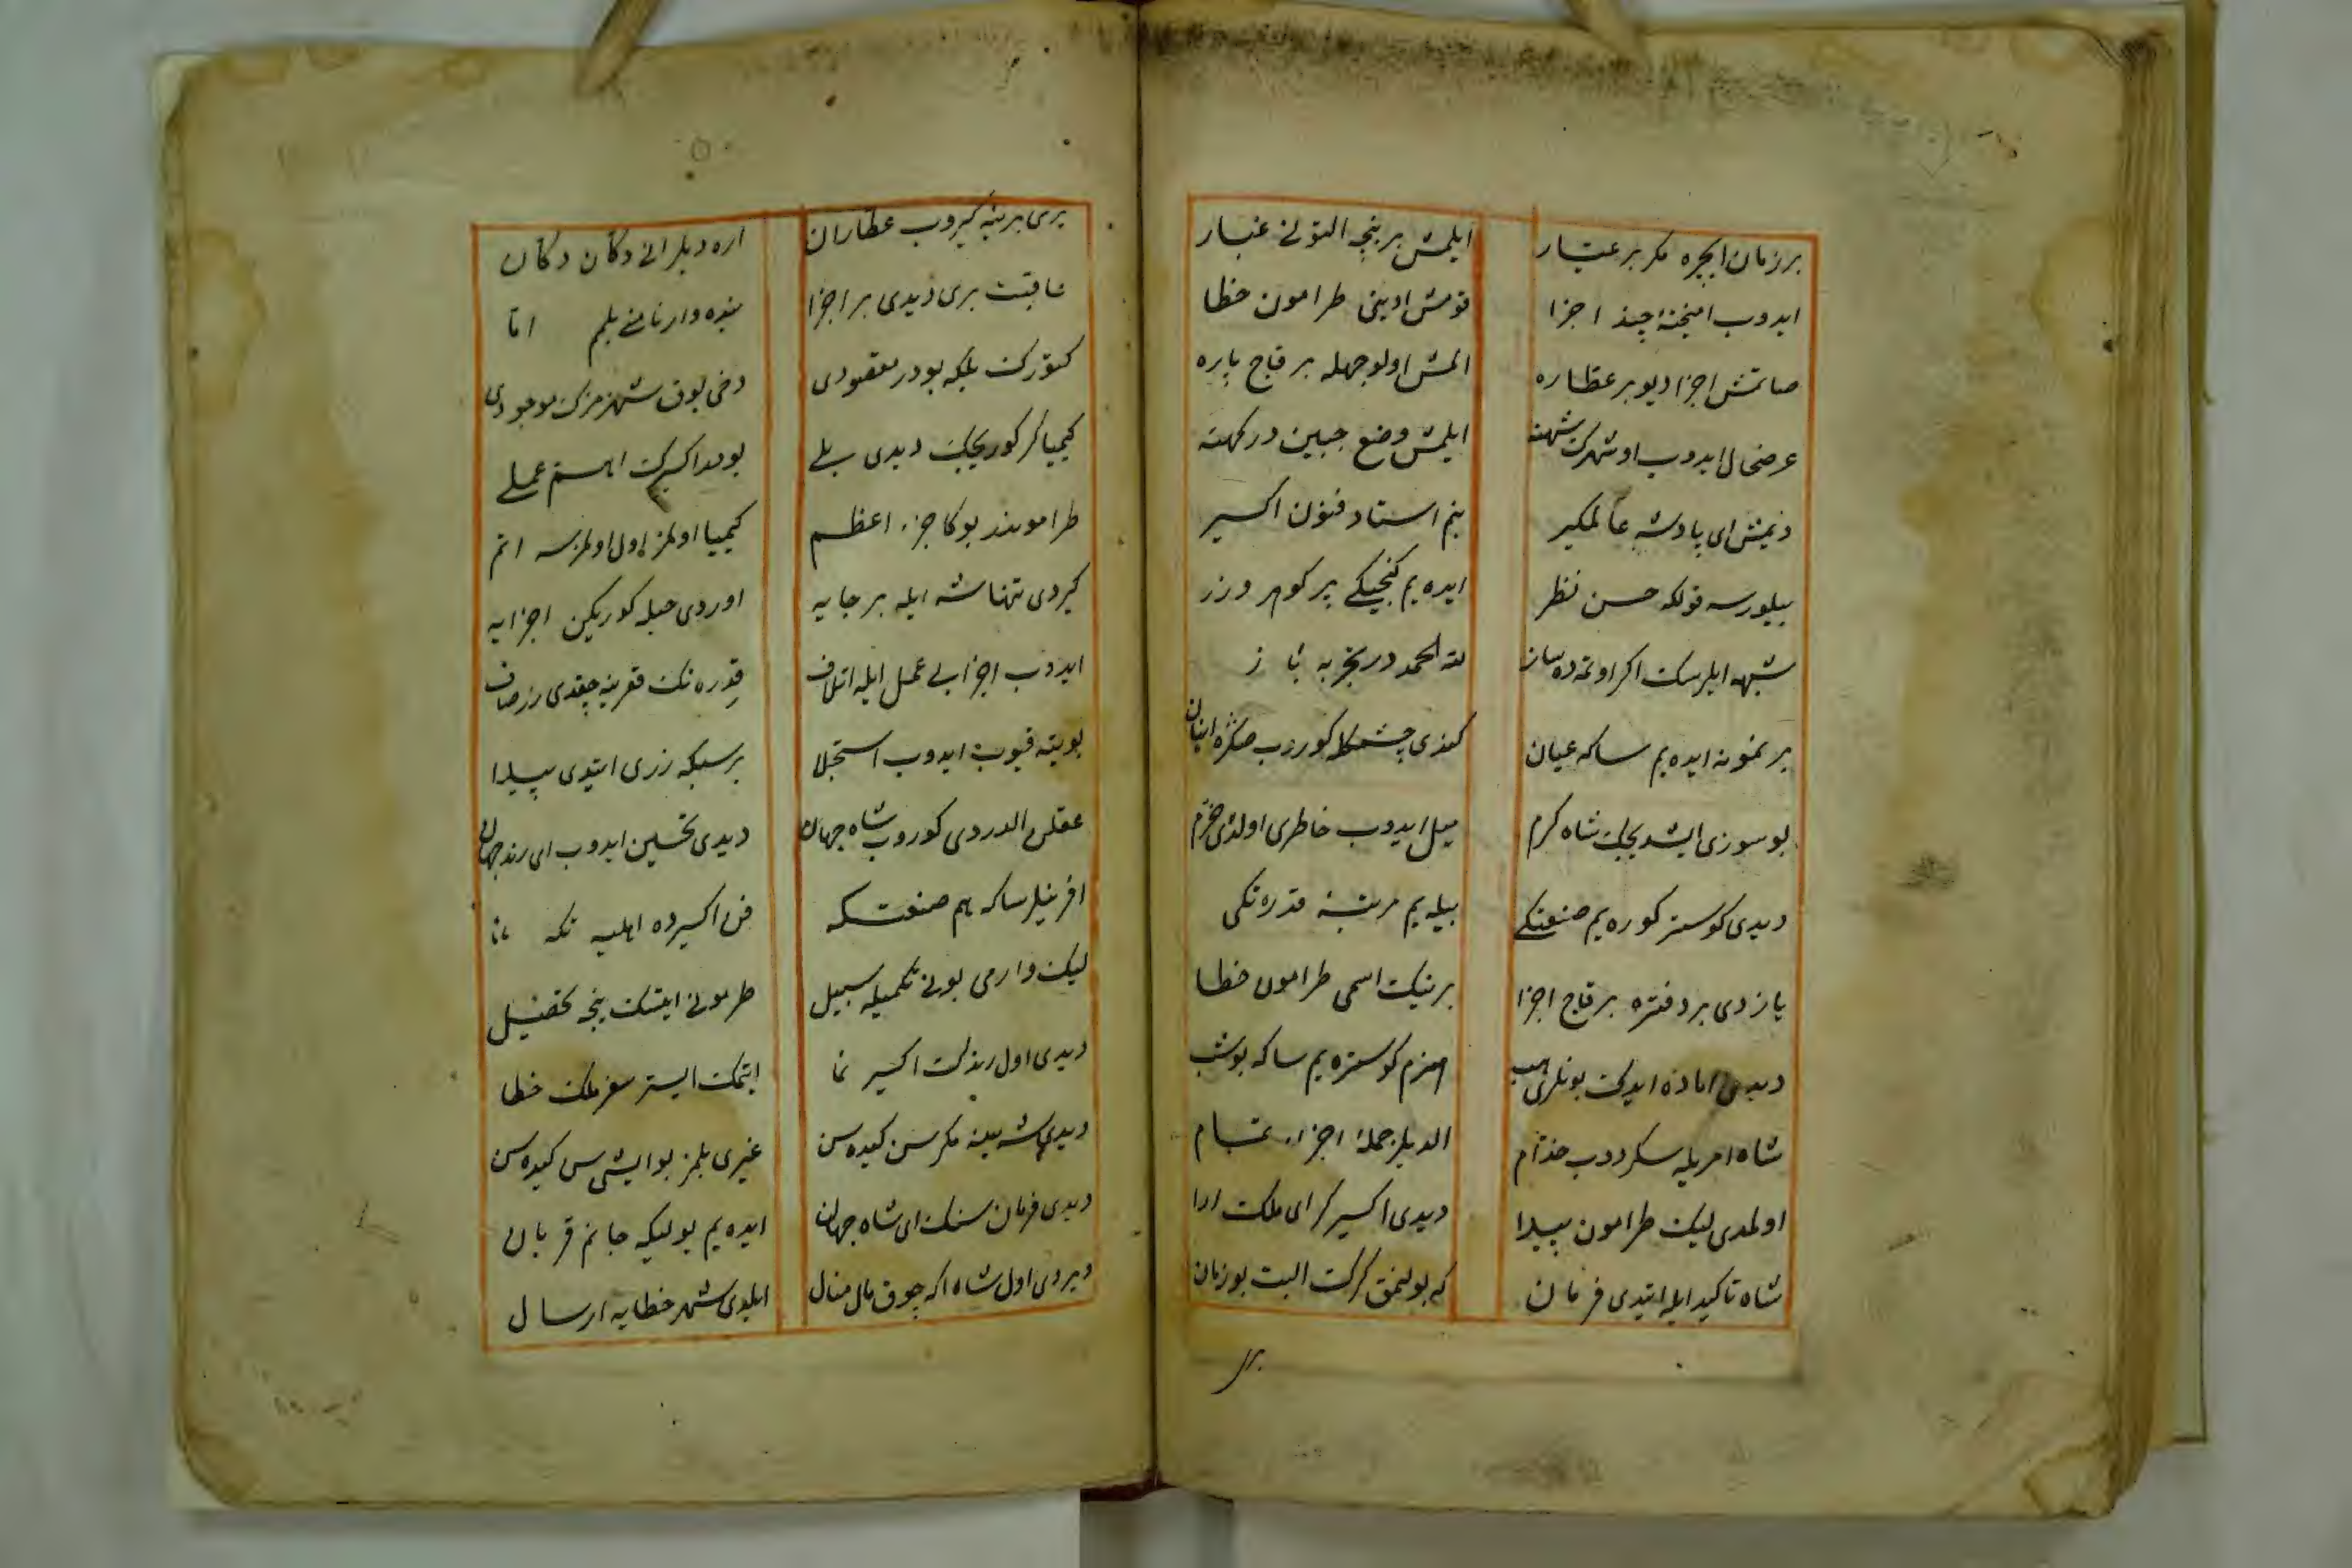 بر زمان ایچره مكر بر عیار
ایلمش بر نیجه التونی غبار
ایدوب امیخته چند اجزا
قومش ادینی طرامون خطا
صاتمش اجزا دیو بر عطاره
المش اولوجهله بر قاچ پاره
عرضحال ایدوب او شهرك شهنه
ایلمش وضع جبین درکهنه
دیمش ای پادشه عالمکیر
بنم استاد فنون اكسیر
بیلورسه قولکه حسن نظر
ایده یم کنجیکی پر کوهر و زر
شبهه ایلرسك اكر اوتمده ساز
لله الحمد در تجربه باز
بر نمونه ایده یم ساكه عیان
کندی چشمکله کوروب صکره اینان
بو سوزی ایشدیجك شاه کرم
میل ایدوب خاطری اولدی خرم
دیدی کوستر کوره یم صنعتکی
بیله یم مرتبۀ قدرتکی
یازدی بر دفتره بر قاچ اجزا
برینك اسمی طرامون خطا
دیدی اماده ایدك بونلری هپ
هنرم کوستره یم ساكه بو شب
شاه امریله سكردوب خدام
الدیلر جملۀ اجزاء تمام
اولمدی لیك طرامون پیدا
دیدی اكسیركر ای ملك ارا
شاه تاكید ایله ایتدی فرمان
كه بولنمق كرك البت بو زمان
بری برینه کیروب عطاران
اره دیلر انی دكان دكان
عاقبت بری دیدی بر اجزا
بنده وار نامنی بلم اما
کتورك بلكه بودر مقصودی
دخی یوق شهرمزك موجودی
کیمیاکر کوریجك دیدی بلی
بودر اكسیرك اهم عملی
طراموندر بوكا جزء اعظم
کیمیا اولمز اول اولمزسه اتم
کیردی تنها شه ایله بر جایه
اوردی حیله کوریكن اجزایه
ایدوب اجزایی عمل ایله اتلاف
قدره نك قعرینه چقدی زر صاف
بویته قیوب ایدوب استجلا
بر سبیكه زری ایتدی پیدا
عقلن الدردی کوروب شاه جهان
دیدی تحسین ایدوب ای رند جهان
افرینلر ساكه هم صنعتكه
فن اكسیرده اهلیتكه
لیك وارمی بونی تكمیله سبیل
طرمونی ایتسك نیجه تحصیل
دیدی اول رندك اكسیر نما
ایتمك ایستر سفر ملك خطا
دیدی شه ینه مكر سن کیده سن
غیری بلمز بو ایشی سن کیده سن
دیدی فرمان سنك ای شاه جهان
ایده یم یولیكه جانم قربان
ویردی اول شاه اكه چوق مال منال
ایلدی شهر خطایه ارسال